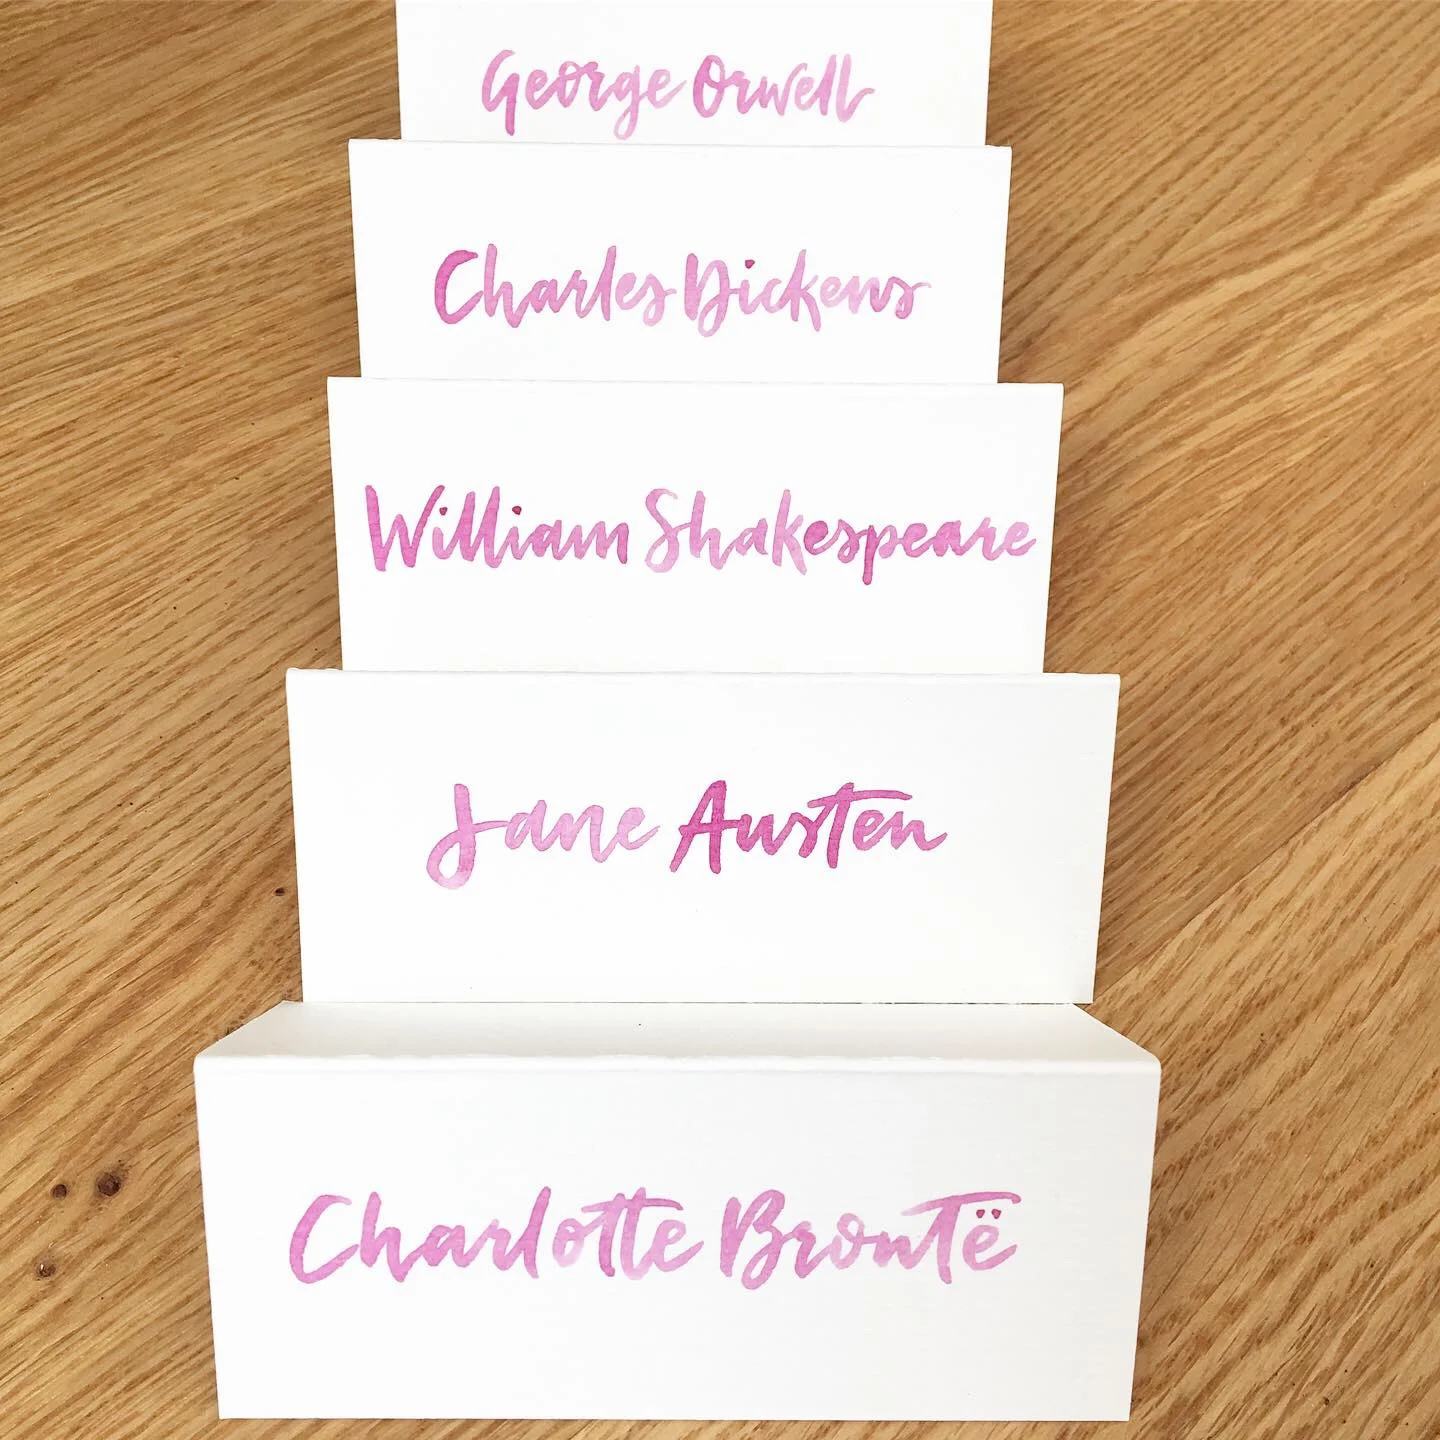 George Orwell
Charles Dickens
William Shakespeare
Jane Austen
Charlotte Brontë